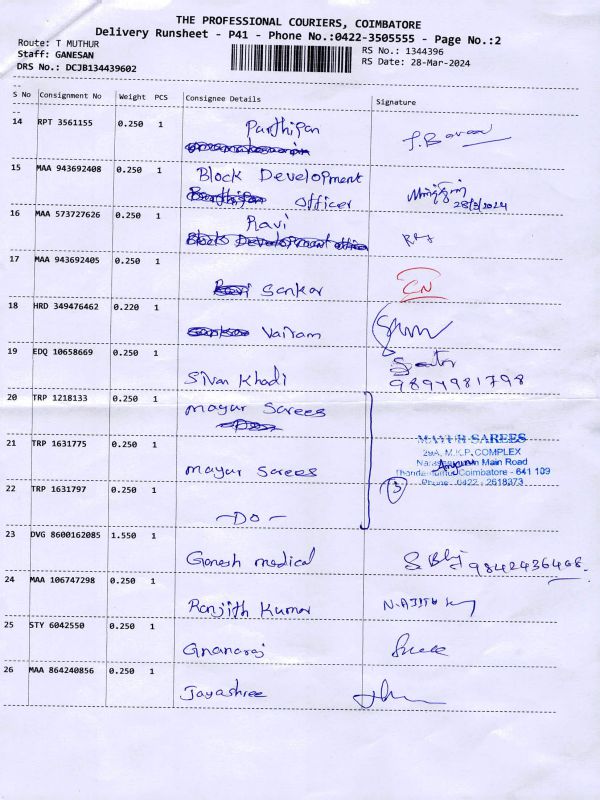 THE PROFESSIONAL COURIERS, COIMBATORE
Delivery Runsheet - P41 - Phone No.:0422-3505555 - Page No.:2
Route: T MUTHUR
RS No.: 1344396
Staff: GANESAN
RS Date: 28-Mar-2024
DRS No.: DCJB134439602
S No Consignment No Weight PCS Consignee Details Signature
14 RPT 3561155 0.250 1 Parthipan
15 MAA 943692408 0.250 1 Block Development
Officer 28/3/2024
16 MAA 573727626 0.250 1 Ravi
Block Development office
17 MAA 943692405 0.250 1 Sankar CN
18 HRD 349476462 0.220 1 Vairam
19 EDQ 10658669 0.250 1 Sivan Khadi
9894981798
20 TRP 1218133 0.250 1 Mayur Sarees
21 TRP 1631775 0.250 1 Mayur Sarees
MAYUR SAREES
29A, M.K.P. COMPLEX
Main Road
Coimbatore - 641 109
Phone : 0422 - 2618373
3
22 TRP 1631797 0.250 1 -DO-
23 DVG 8600162085 1.550 1 Ganesh medical 9842436468
24 MAA 106747298 0.250 1 Ranjith Kumar
25 STY 6042550 0.250 1 Gnanaraj
26 MAA 864240856 0.250 1 Jayashree